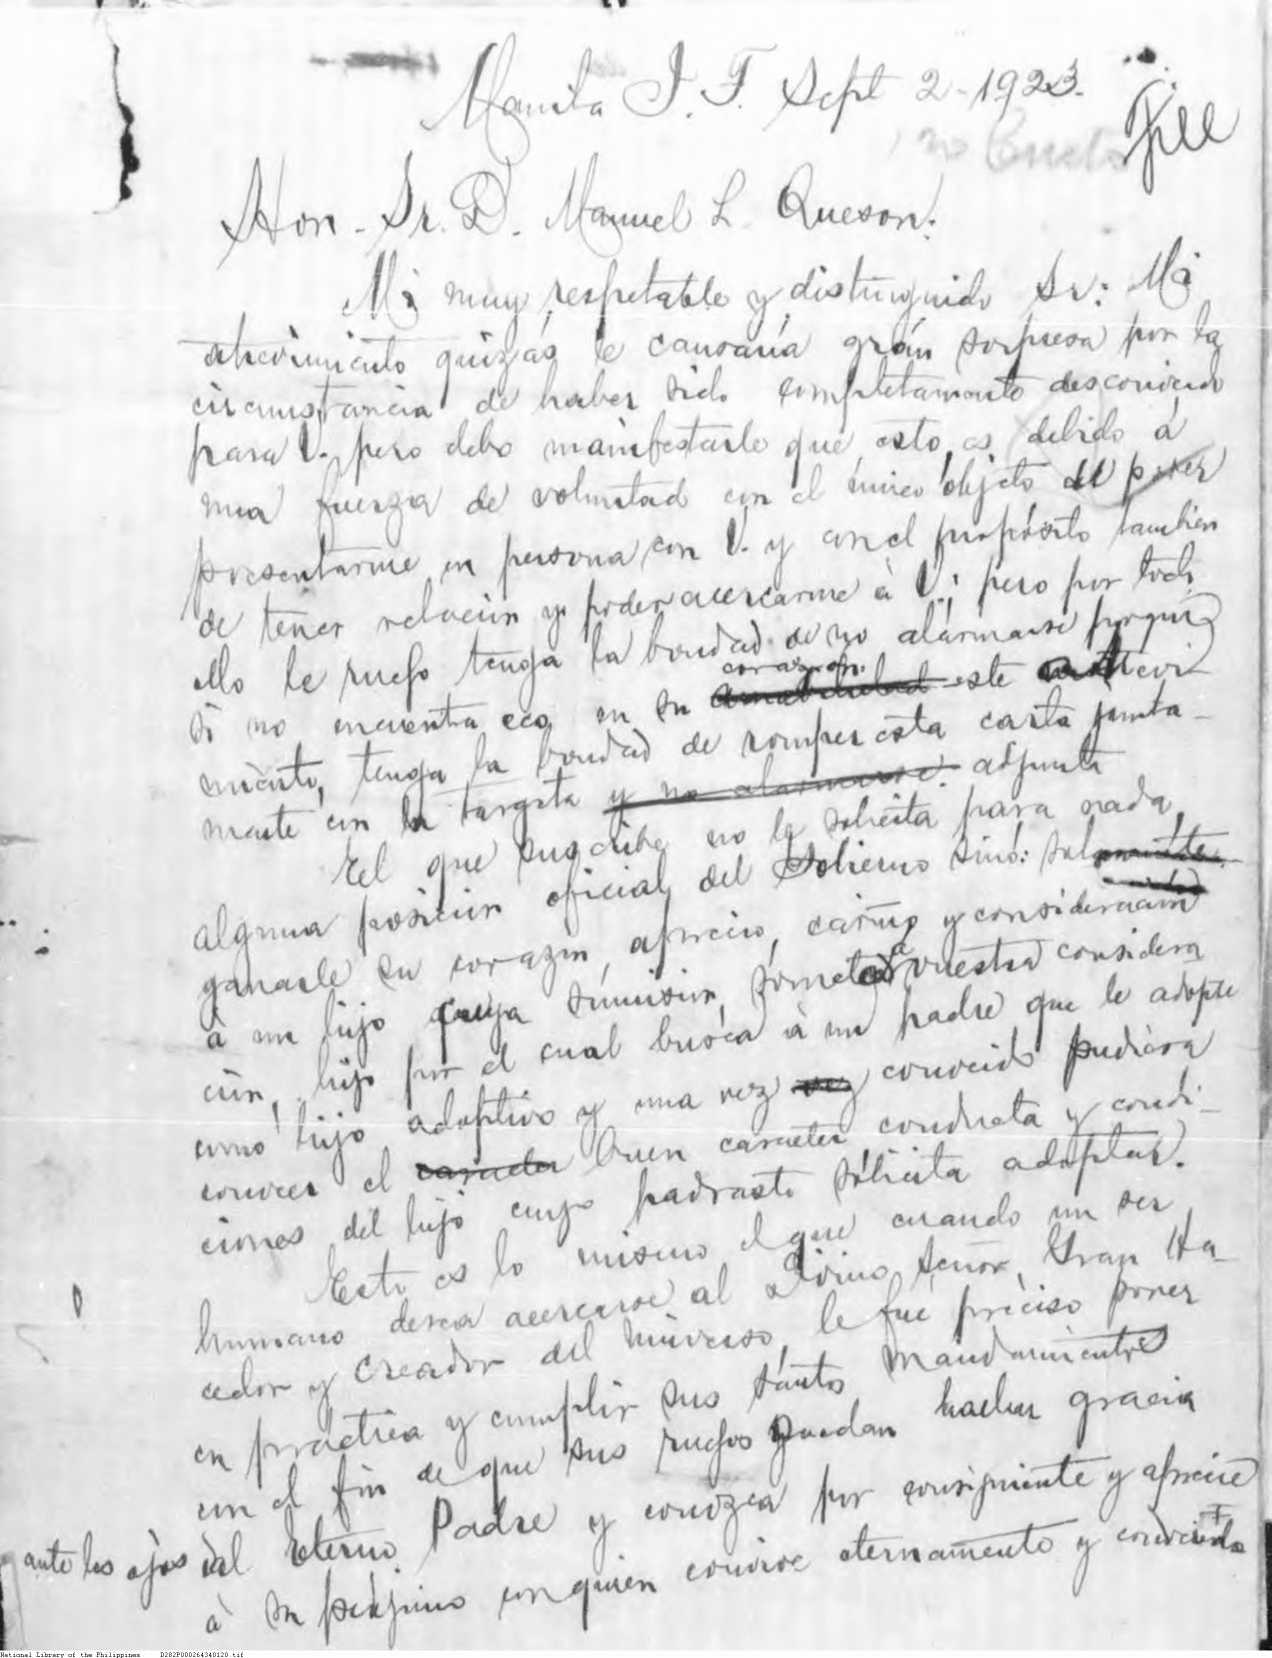 Manila I. F. Sept 2-1923.
File
Hon. Sr. D. Manuel L. Queson:
Mi muy respetable y distinguido Sr: Mi
atrevimiento quizás le causaría grán sorpresa por la
circunstancia de haber sido completamente desconocido
para V. pero debo manifestarle que esto, es debido á
una fuerza de voluntad con el único objeto de poder
presentarme en persona con V. y con el propósito tambien
de tener relación y poder acercarme á V.; pero por todo
ello le ruego tenga la bondad de no alarmarse porque
si no encuentra eco en su amabilidad corazón. este atrevi-
miento, tenga la bondad de romper esta carta junta-
mente con la targeta y no alarmarse adjunta
El que suscribe no le solicita para nada,
alguna posición oficial del Gobierno sinó: solamente
ganarle su corazon, aprecio, cariño y consideración
á un hijo cuya sumision, somete á vuestra considera
ción, hijo por el cual busca á un padre que le adopte
como hijo adoptivo y una vez conocido pudiera
conocer el caracter buen caracter conducta y condi-
ciones del hijo cuyo padrasto solicita adoptar.
Esto es lo mismo el que cuando un ser
humano desea acercarse al Divino Señor, Gran Ha-
cedor y Creador del Universo, le fué preciso poner
en práctica y cumplir sus santos mandamientos
con el fin de que sus ruegos puedan hacer gracia
ante los ojos del Eterno Padre y conozca por consiguiente y aprecie
á su prójimo con quien convive eternamente y